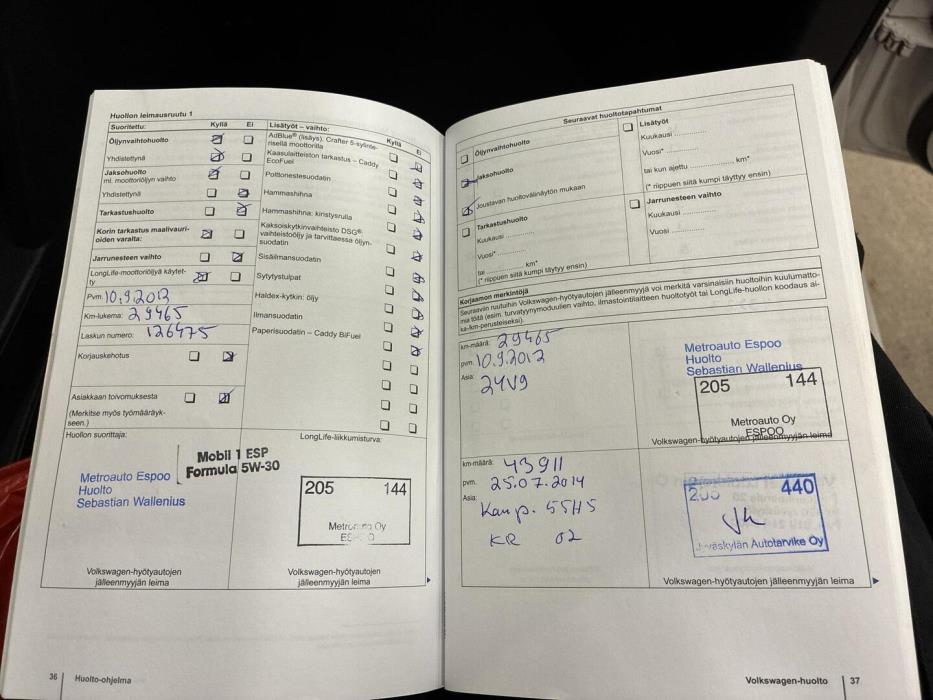 Huollon leimausruutu 1
Suoritettu: Kyllä Ei
Öljynvaihtohuolto
Yhdistettynä
Jaksohuolto
ml. moottoriöljyn vaihto
Yhdistettynä
Tarkastushuolto
Korin tarkastus maalivauri-
oiden varalta:
Jarrunesteen vaihto
LongLife-moottoriöljyä käytet-
ty
Pvm: 10.9.2013
Km-lukema: 29465
Laskun numero: 126475
Korjauskehotus
Asiakkaan toivomuksesta
(Merkitse myös työmääräyk-
seen.)
Huollon suorittaja:
Mobil 1 ESP
Formula 5W-30
Metroauto Espoo
Huolto
Sebastian Wallenius
Volkswagen-hyötyautojen
jälleenmyyjän leima
Lisätyöt – vaihto: Kyllä Ei
AdBlue® (lisäys). Crafter 5-sylinte-
risellä moottorilla
Kaasulaitteiston tarkastus – Caddy
EcoFuel
Polttonestesuodatin
Hammashihna
Hammashihna: kiristysrulla
Kaksoiskytkinvaihteisto DSG®
vaihteistoöljy ja tarvittaessa öljyn-
suodatin
Sisäilmansuodatin
Sytytystulpat
Haldex-kytkin: öljy
Ilmansuodatin
Paperisuodatin – Caddy BiFuel
LongLife-liikkumisturva:
205 144
Oy
Volkswagen-hyötyautojen
jälleenmyyjän leima
36 Huolto-ohjelma
Seuraavat huoltotapahtumat
Öljynvaihtohuolto
Jaksohuolto
Joustavan huoltovälinäytön mukaan
Tarkastushuolto
Kuukausi ..............
Vuosi* ..............
tai .............. km*
(* riippuen siitä kumpi täyttyy ensin)
Lisätyöt
Kuukausi ..............
Vuosi* ..............
tai kun ajettu .............. km*
(* riippuen siitä kumpi täyttyy ensin)
Jarrunesteen vaihto
Kuukausi ..............
Vuosi ..............
Korjaamon merkintöjä
Seuraaviin ruutuihin Volkswagen-hyötyautojen jälleenmyyjä voi merkitä varsinaisiin huoltoihin kuulumatto-
mia töitä (esim. turvatyynymoduulien vaihto, ilmastointilaitteen huoltotyöt tai LongLife-huollon koodaus ai-
ka-/km-perusteiseksi).
km-määrä: 29465
pvm. 10.9.2013
Asia: 24V9
Metroauto Espoo
Huolto
Sebastian Wallenius
205 144
Metroauto Oy
ESPOO
Volkswagen-hyötyautojen jälleenmyyjän leima
km-määrä: 43911
pvm. 25.07.2014
Asia: Kamp. 55H5
KR 02
205 440
Jyväskylän Autotarvike Oy
Volkswagen-hyötyautojen jälleenmyyjän leima
Volkswagen-huolto 37